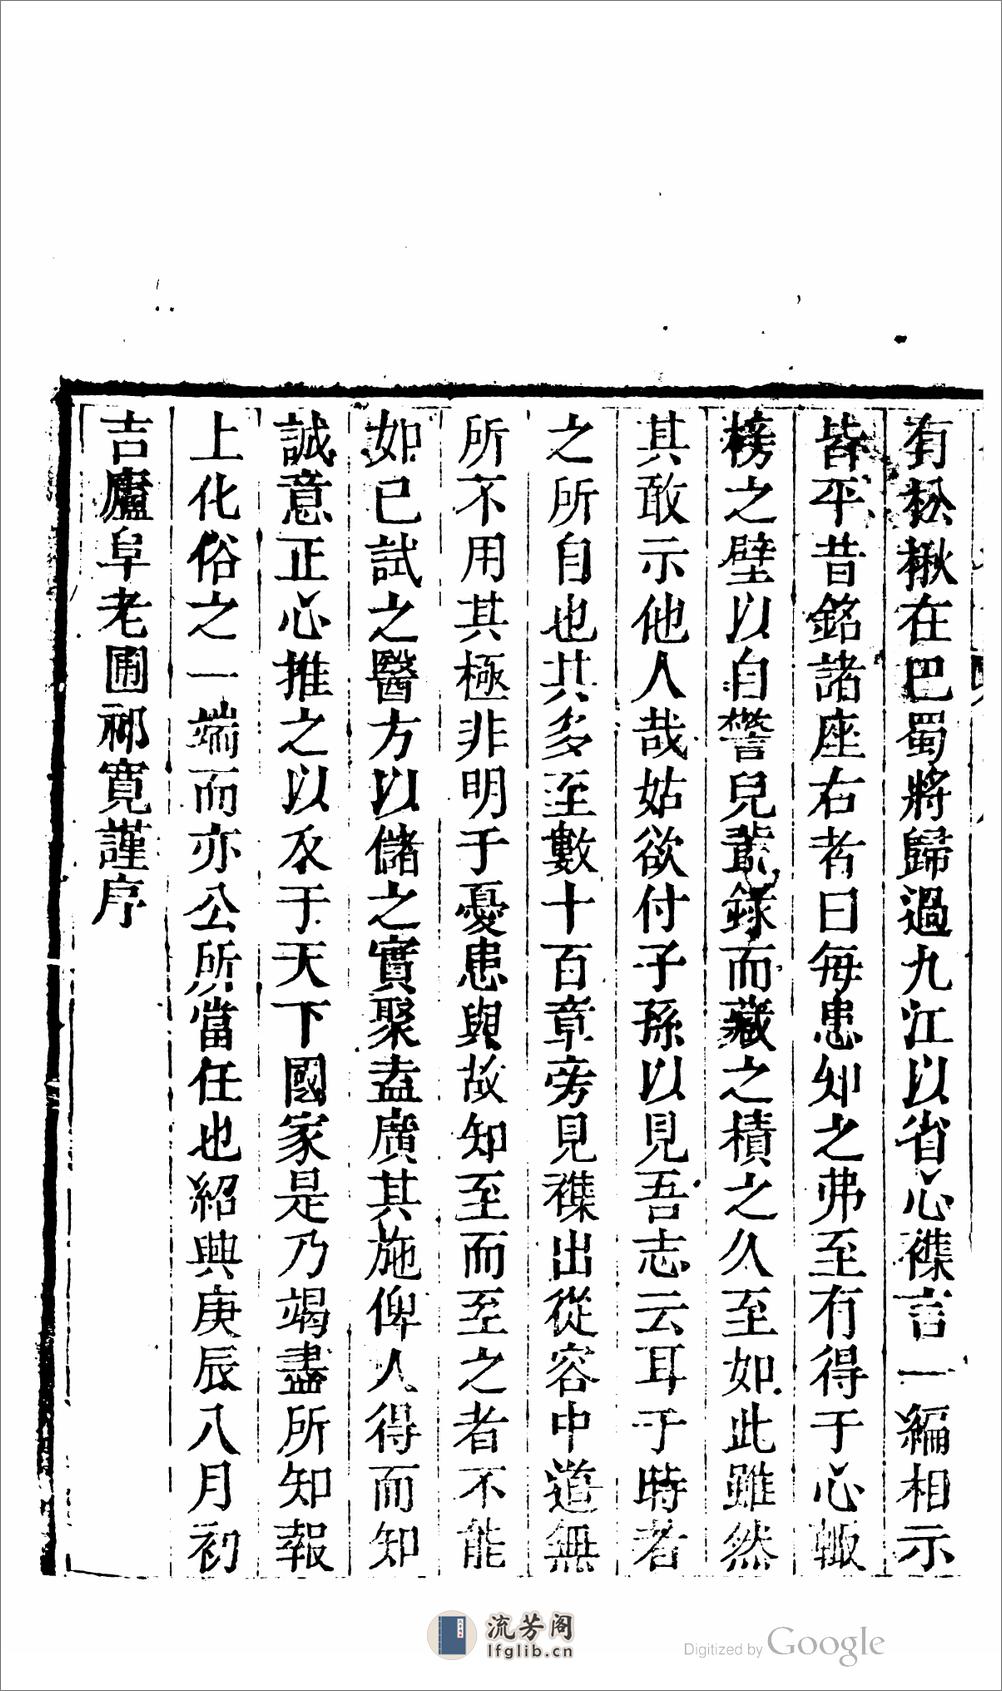 有松楸在巴蜀將歸過九江以省心襍言一編相示
皆平昔銘諸座右者曰每患知之弗至有得于心輙
榜之壁以自警兒輩錄而藏之積之久至如此雖然
其敢示他人哉姑欲付子孫以見吾志云耳于時者
之所自也其多至數十百章旁見襍出從容中道無
所不用其極非明于憂患與故知至而至之者不能
如已試之醫方以儲之實聚盍廣其施俾人得而知
誠意正心推之以及于天下國家是乃竭盡所知報
上化俗之一端而亦公所當任也紹興庚辰八月初
吉廬阜老圃祁寬謹序
流芳阁
lfglib.cn
Digitized by Google